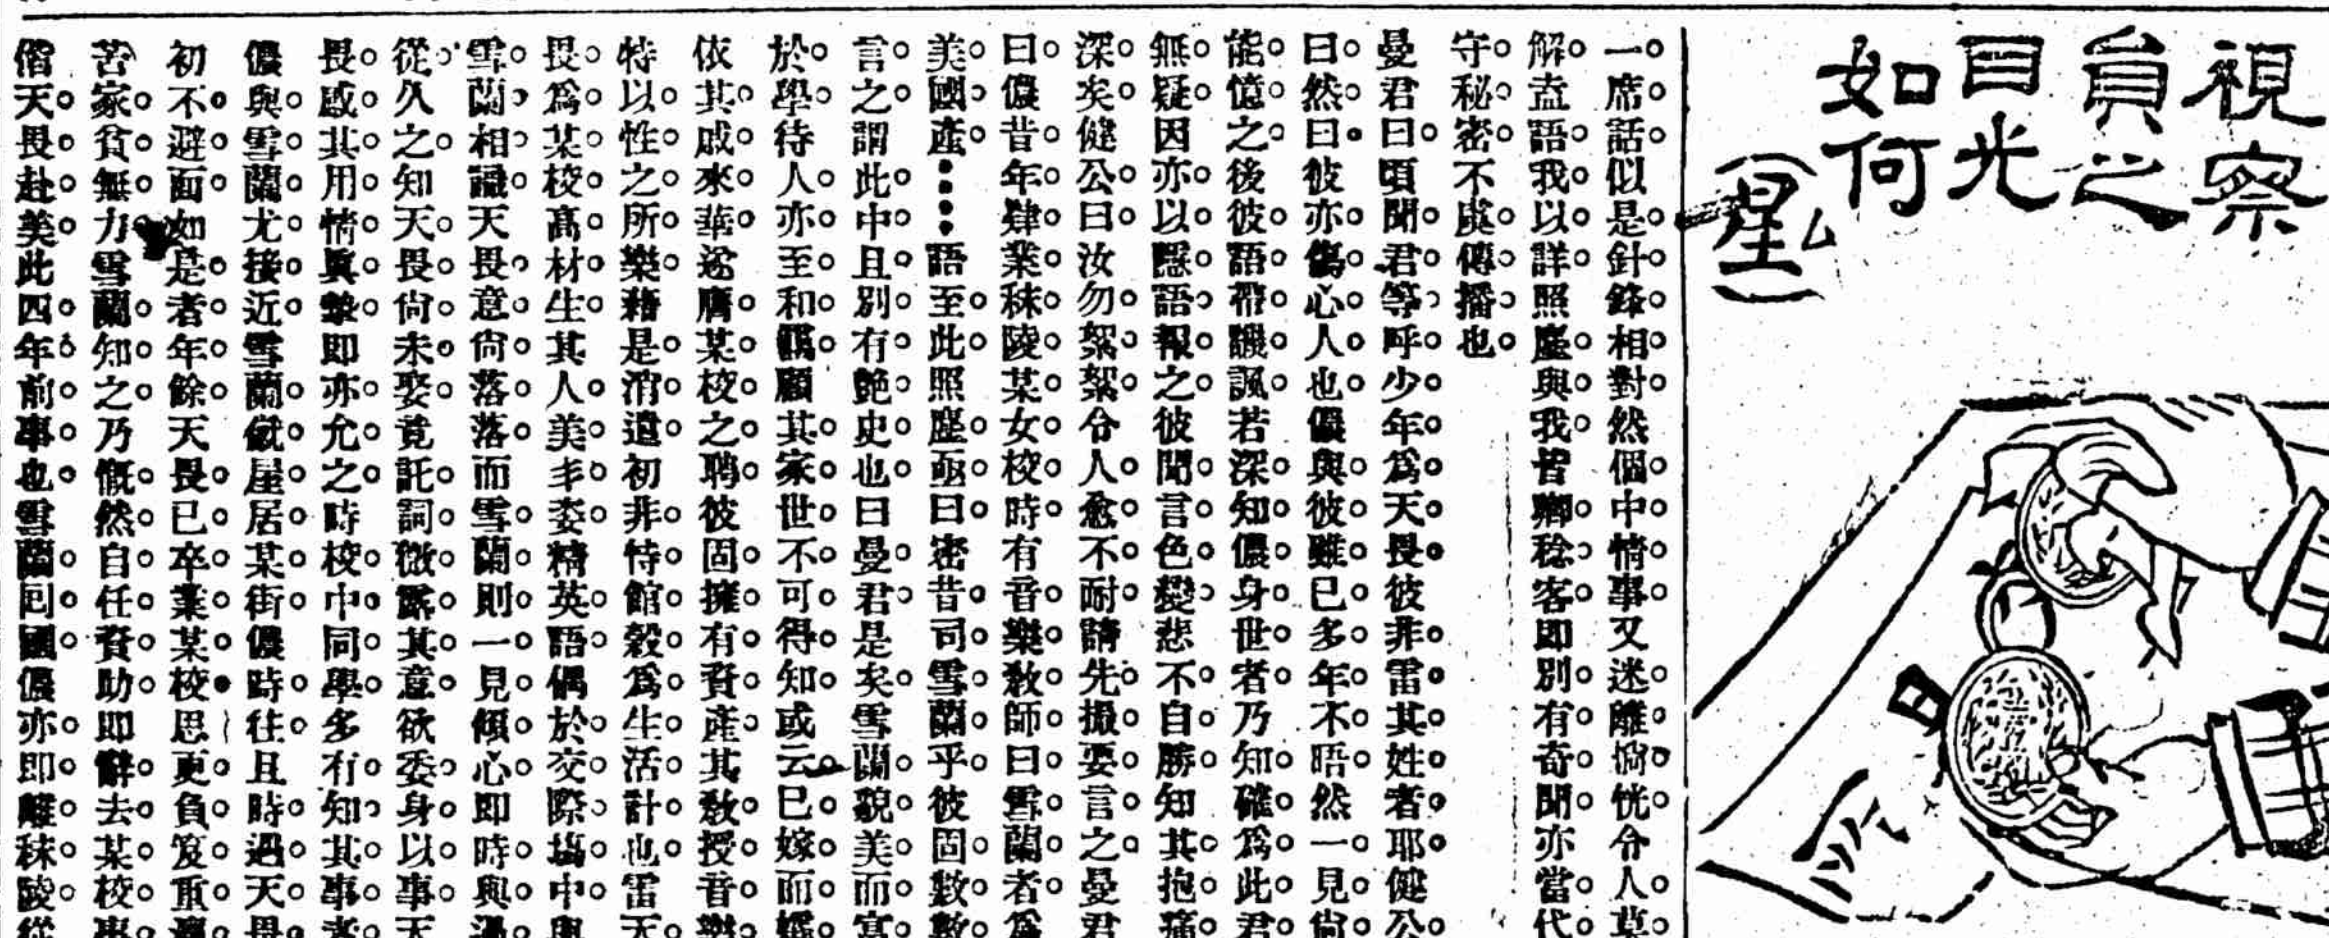 視察
員之
目光
如何
(星)
一席話似是針鋒相對然個中情事又迷離惝恍令人莫
解盍語我以詳照塵與我皆剛稔客即別有奇聞亦當代
守秘密不虞傳播也
曼君曰頃聞君等呼少年爲天畏彼非雷其姓者耶健公
曰然曰彼亦傷心人也儂與彼雖已多年不晤然一見尙
能憶之後彼語帶譏諷若深知儂身世者乃知確爲此君
無疑因亦以隱語報之彼聞言色變悲不自勝知其抱痛
深矣健公曰汝勿絮絮令人愈不耐請先撮要言之曼君
曰儂昔年肄業秣陵某女校時有音樂敎師曰雪蘭者爲
美國產⋯⋯語至此照塵亟曰密昔司雪蘭乎彼固數數
言之謂此中且別有艷史也曰曼君是矣雪蘭貌美而富
於學待人亦至和藹顧其家世不可得知或云已嫁而孀
依其戚來華遂膺某校之聘彼固擁有資產其敎授音樂
特以性之所樂藉是消遣初非恃館穀爲生活計也雷天
畏爲某校高材生其人美丰姿精英語偶於交際塲中與
雪蘭相識天畏意尙落落而雪蘭則一見傾心即時與過
從久之知天畏尙未娶竟託詞微露其意欲委身以事天
畏感其用情眞摯即亦允之時校中同學多有知其事者
儂與雪蘭尤接近雪蘭僦屋居某街儂時往且時遇天畏
初不避面如是者年餘天畏已卒業某校思更負笈重瀛
苦家貧無力雪蘭知之乃慨然自任資助即辭去某校事
偕天畏赴美此四年前事也雪蘭囘國儂亦即離秣陵從